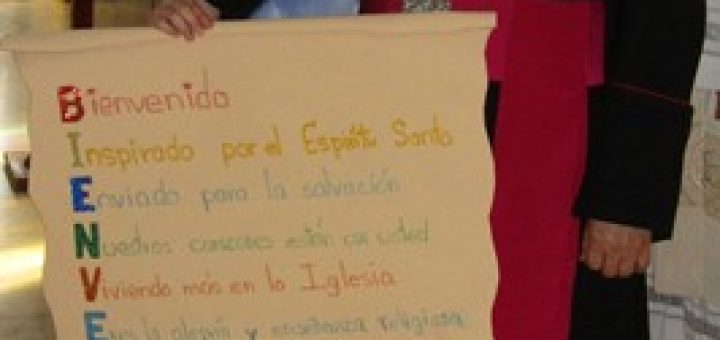 Bienvenido
Inspirado por el Espíritu Santo
Enviado para la salvación
Nuestros corazones están con usted
Viviendo más en la Iglesia
la alegría y enseñanza religiosa